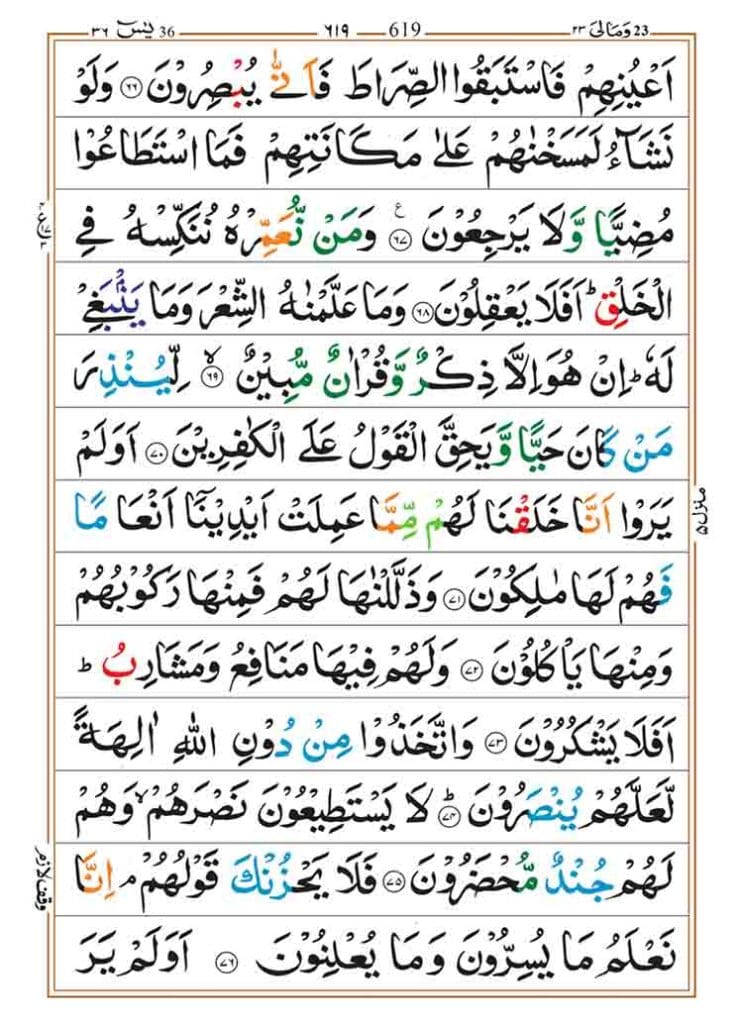 23 وَمَالِیَ ۲۳ 619 ۶۱۹ یٰسٓ 36 ۳۶
اَعْيُنِهِمْ فَاسْتَبَقُوا الصِّرَاطَ فَاَنّٰى يُبْصِرُوْنَ ۝۶۶ وَلَوْ
نَشَآءُ لَمَسَخْنٰهُمْ عَلٰى مَكَانَتِهِمْ فَمَا اسْتَطَاعُوْا
مُضِيًّا وَّلَا يَرْجِعُوْنَ ۝۶۷ ع وَمَنْ نُّعَمِّرْهُ نُنَكِّسْهُ فِي
الْخَلْقِ ؕ اَفَلَا يَعْقِلُوْنَ ۝۶۸ وَمَا عَلَّمْنٰهُ الشِّعْرَ وَمَا يَنْۢبَغِيْ
لَهٗ ؕ اِنْ هُوَ اِلَّا ذِكْرٌ وَّقُرْاٰنٌ مُّبِيْنٌ ۝۶۹ ۙ لِّيُنْذِرَ
مَنْ كَانَ حَيًّا وَّيَحِقَّ الْقَوْلُ عَلَى الْكٰفِرِيْنَ ۝۷۰ اَوَلَمْ
يَرَوْا اَنَّا خَلَقْنَا لَهُمْ مِّمَّا عَمِلَتْ اَيْدِيْنَاۤ اَنْعَامًا
فَهُمْ لَهَا مٰلِكُوْنَ ۝۷۱ وَذَلَّلْنٰهَا لَهُمْ فَمِنْهَا رَكُوْبُهُمْ
وَمِنْهَا يَاْكُلُوْنَ ۝۷۲ وَلَهُمْ فِيْهَا مَنَافِعُ وَمَشَارِبُ ؕ
اَفَلَا يَشْكُرُوْنَ ۝۷۳ وَاتَّخَذُوْا مِنْ دُوْنِ اللّٰهِ اٰلِهَةً
لَّعَلَّهُمْ يُنْصَرُوْنَ ۝۷۴ ؕ لَا يَسْتَطِيْعُوْنَ نَصْرَهُمْ ۙ وَهُمْ
لَهُمْ جُنْدٌ مُّحْضَرُوْنَ ۝۷۵ فَلَا يَحْزُنْكَ قَوْلُهُمْ ۘ اِنَّا
نَعْلَمُ مَا يُسِرُّوْنَ وَمَا يُعْلِنُوْنَ ۝۷۶ اَوَلَمْ يَرَ
منزل ۵
وقف لازم